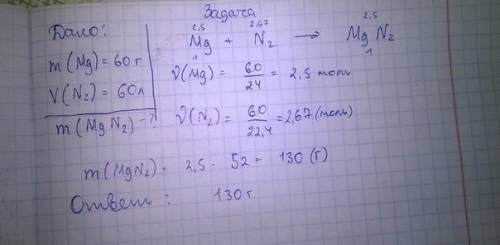 Задача
Дано:
m (Mg) = 60 г
V (N₂) = 60л
m (Mg N₂) - ?
2,5 2,67 2,5
Mg + N₂ → Mg N₂
1 1
ν(Mg) = 60/24 = 2,5 моль
ν(N₂) = 60/22,4 = 2,67 (моль)
m (MgN₂) = 2,5 · 52 = 130 (г)
Ответ: 130 г